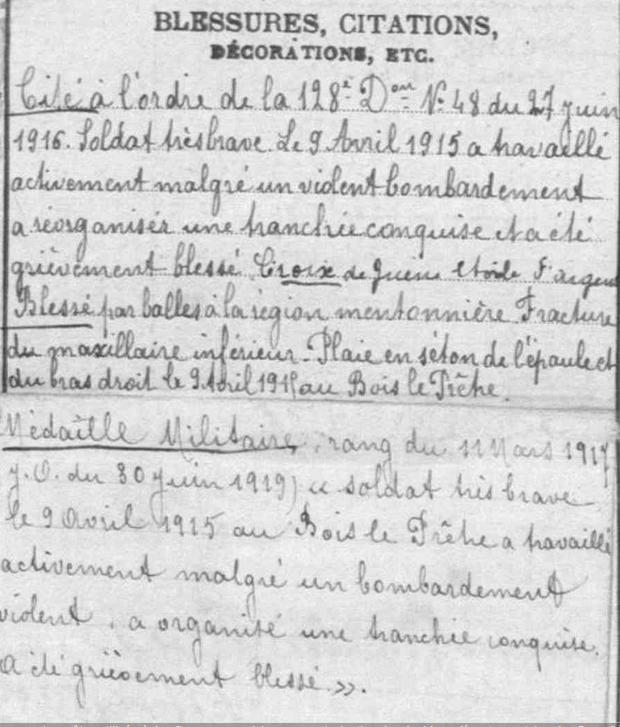 BLESSURES, CITATIONS,
DÉCORATIONS, ETC.
Cité à l'ordre de la 128e Don No 48 du 27 juin
1916. Soldat très brave. Le 9 Avril 1915 a travaillé
activement malgré un violent bombardement
a réorganiser une tranchée conquise et a été
grièvement blessé. Croix de Guerre Etoile d'argent
Blessé par balles à la région mentonnière Fracture
du maxillaire inférieur. Plaie en séton de l'épaule et
du bras droit le 9 Avril 1915 au Bois le Prêtre.
Médaille Militaire, rang du 11 Mars 1917
J.O. du 30 juin 1919) « soldat très brave
le 9 Avril 1915 au Bois le Prêtre a travaillé
activement malgré un bombardement
violent. a organisé une tranchée conquise.
A été grièvement blessé. ».